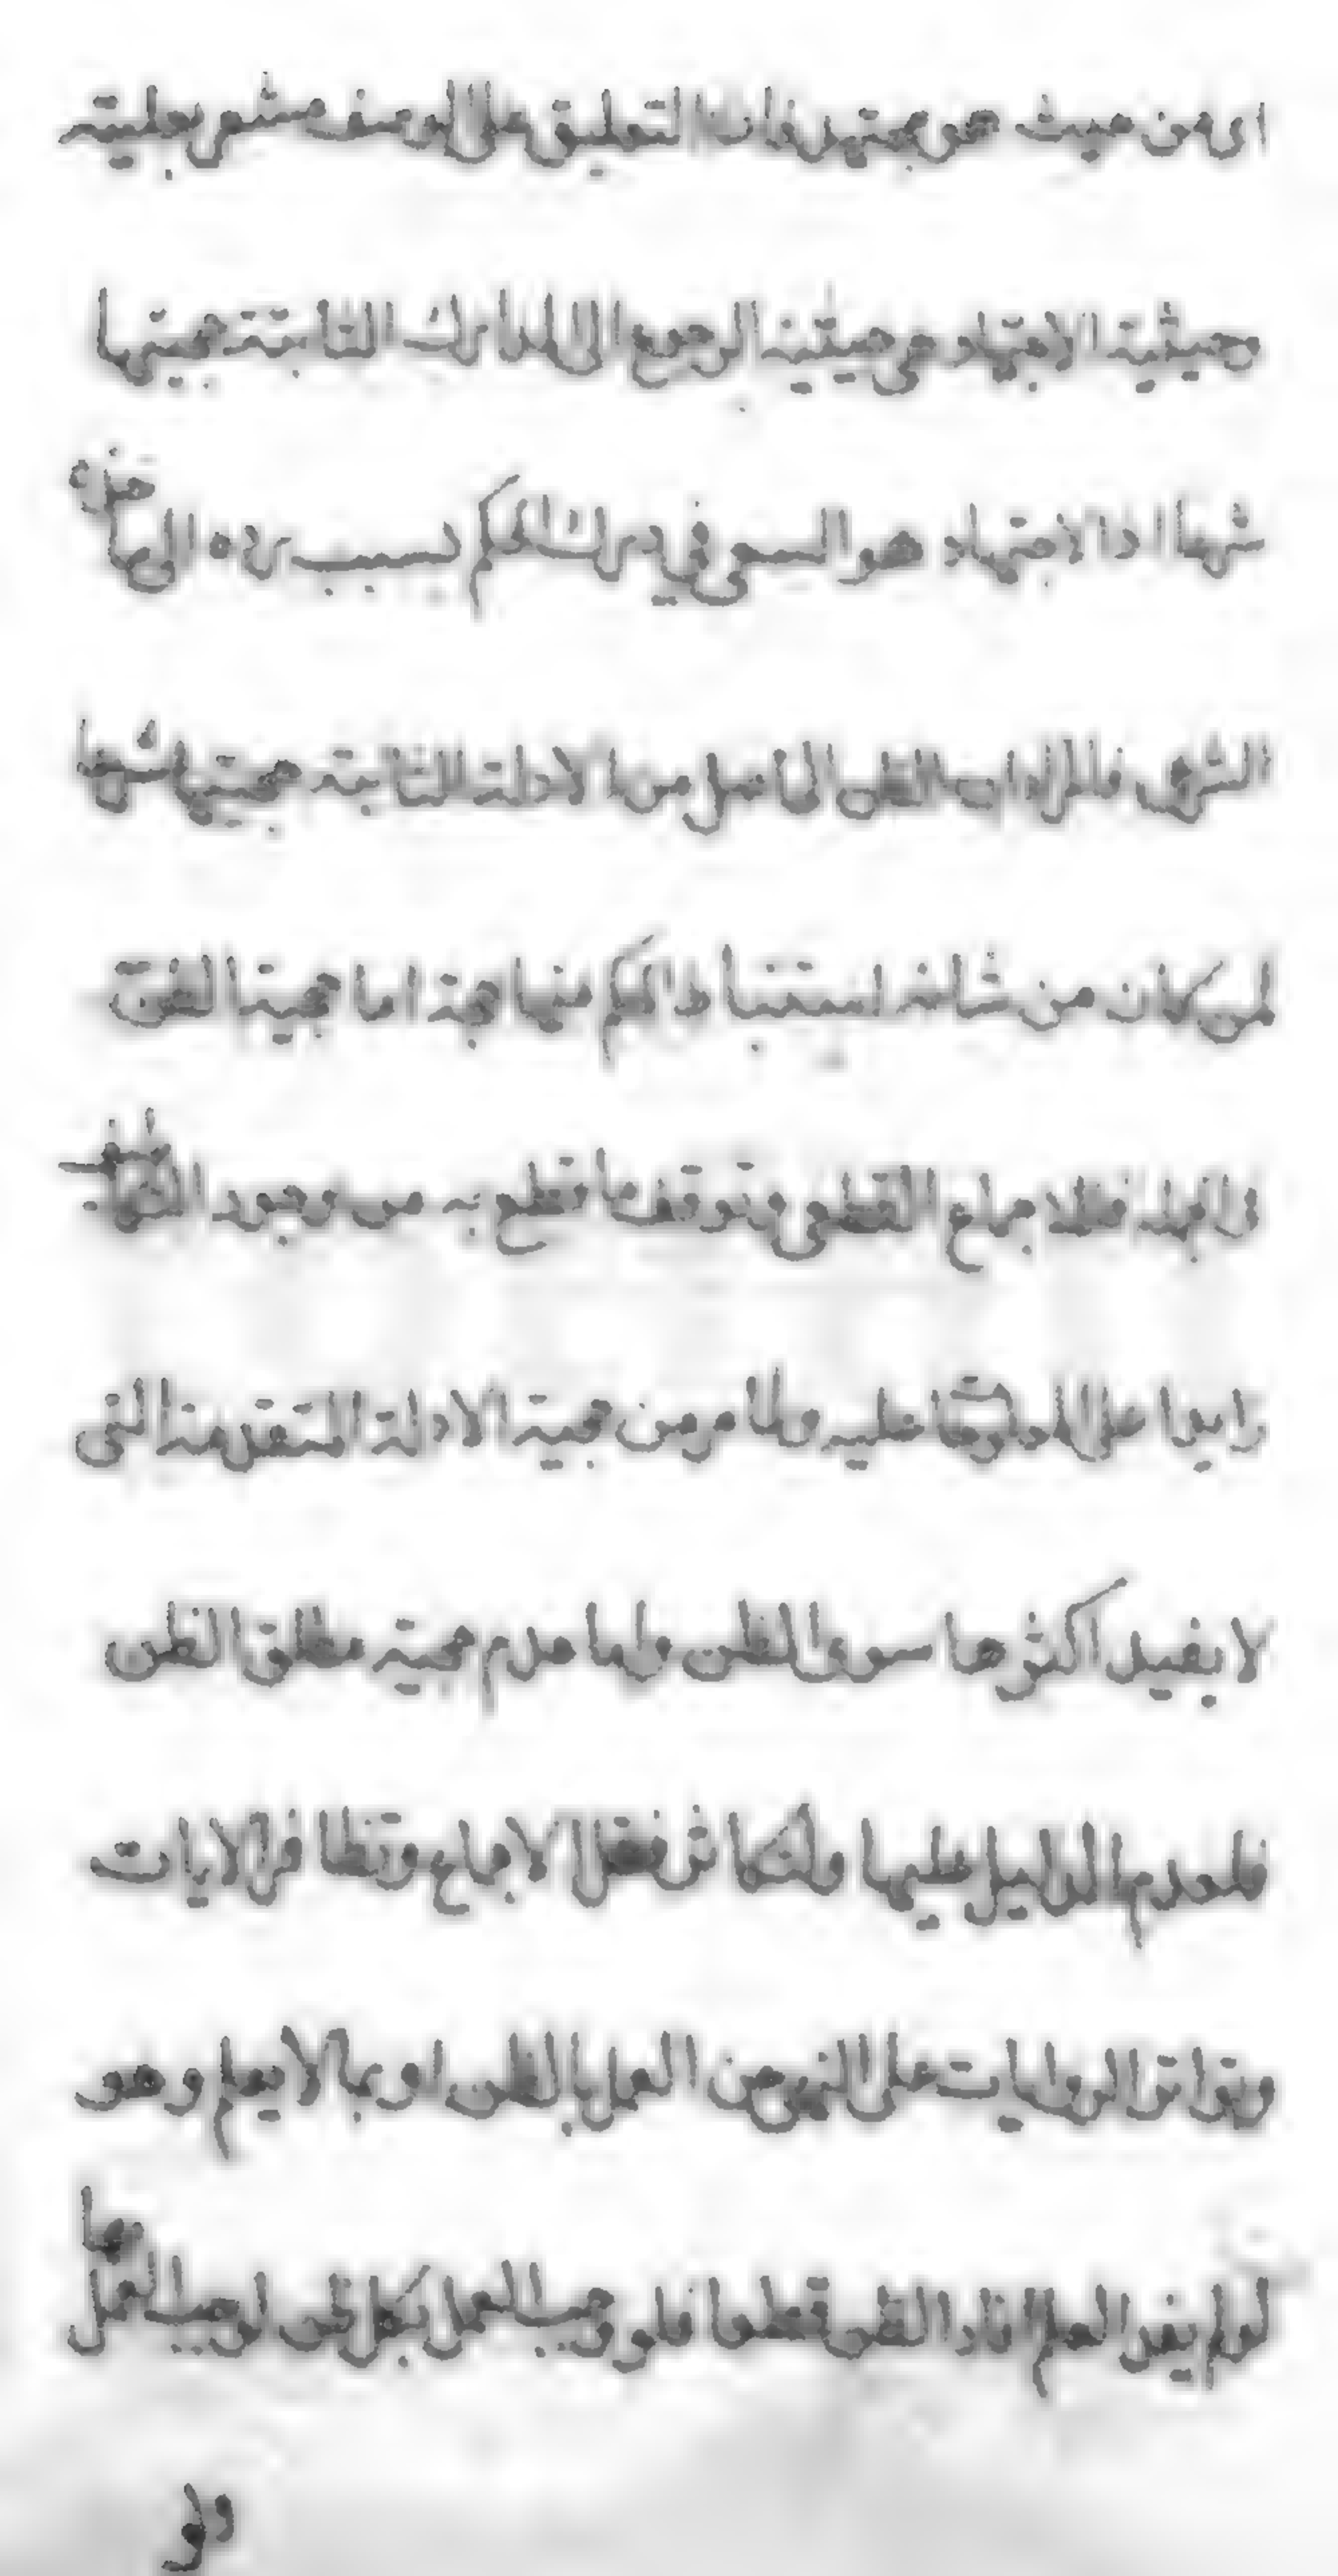 اى من حيث هو مجتهد فان التعليق على الوصف مشعر بعليته
وحيثية الاجتهاد هى حيثية الرجوع الى المدارك الثابتة حجيتها
شرعا اذ الاجتهاد هو السعى فى درك الحكم بسبب
الشرعى فالمراد ان الظن الحاصل من الادلة الثابتة حجيتها شرعا
لمن كان من شانه استنباط الحكم منها حجة اما حجية الظن
فى الجملة فللاجماع القطعى وتوقف ما قطع به من وجود
زايدا على عليه واما من حجية الادلة المتقدمة التى
لا يفيد اكثرها سوى الظن واما عدم حجية مطلق الظن
فلعدم الدليل عليها ولتكاثر نقل الاجماع وتظافر الايات
وتواتر الروايات على النهى عن العمل بالظن او بما لا يعلم وهو
لو لم يفد العلم افاد الظن قطعا فلو وجب العمل بكل ظن لوجب العمل بها
ولو